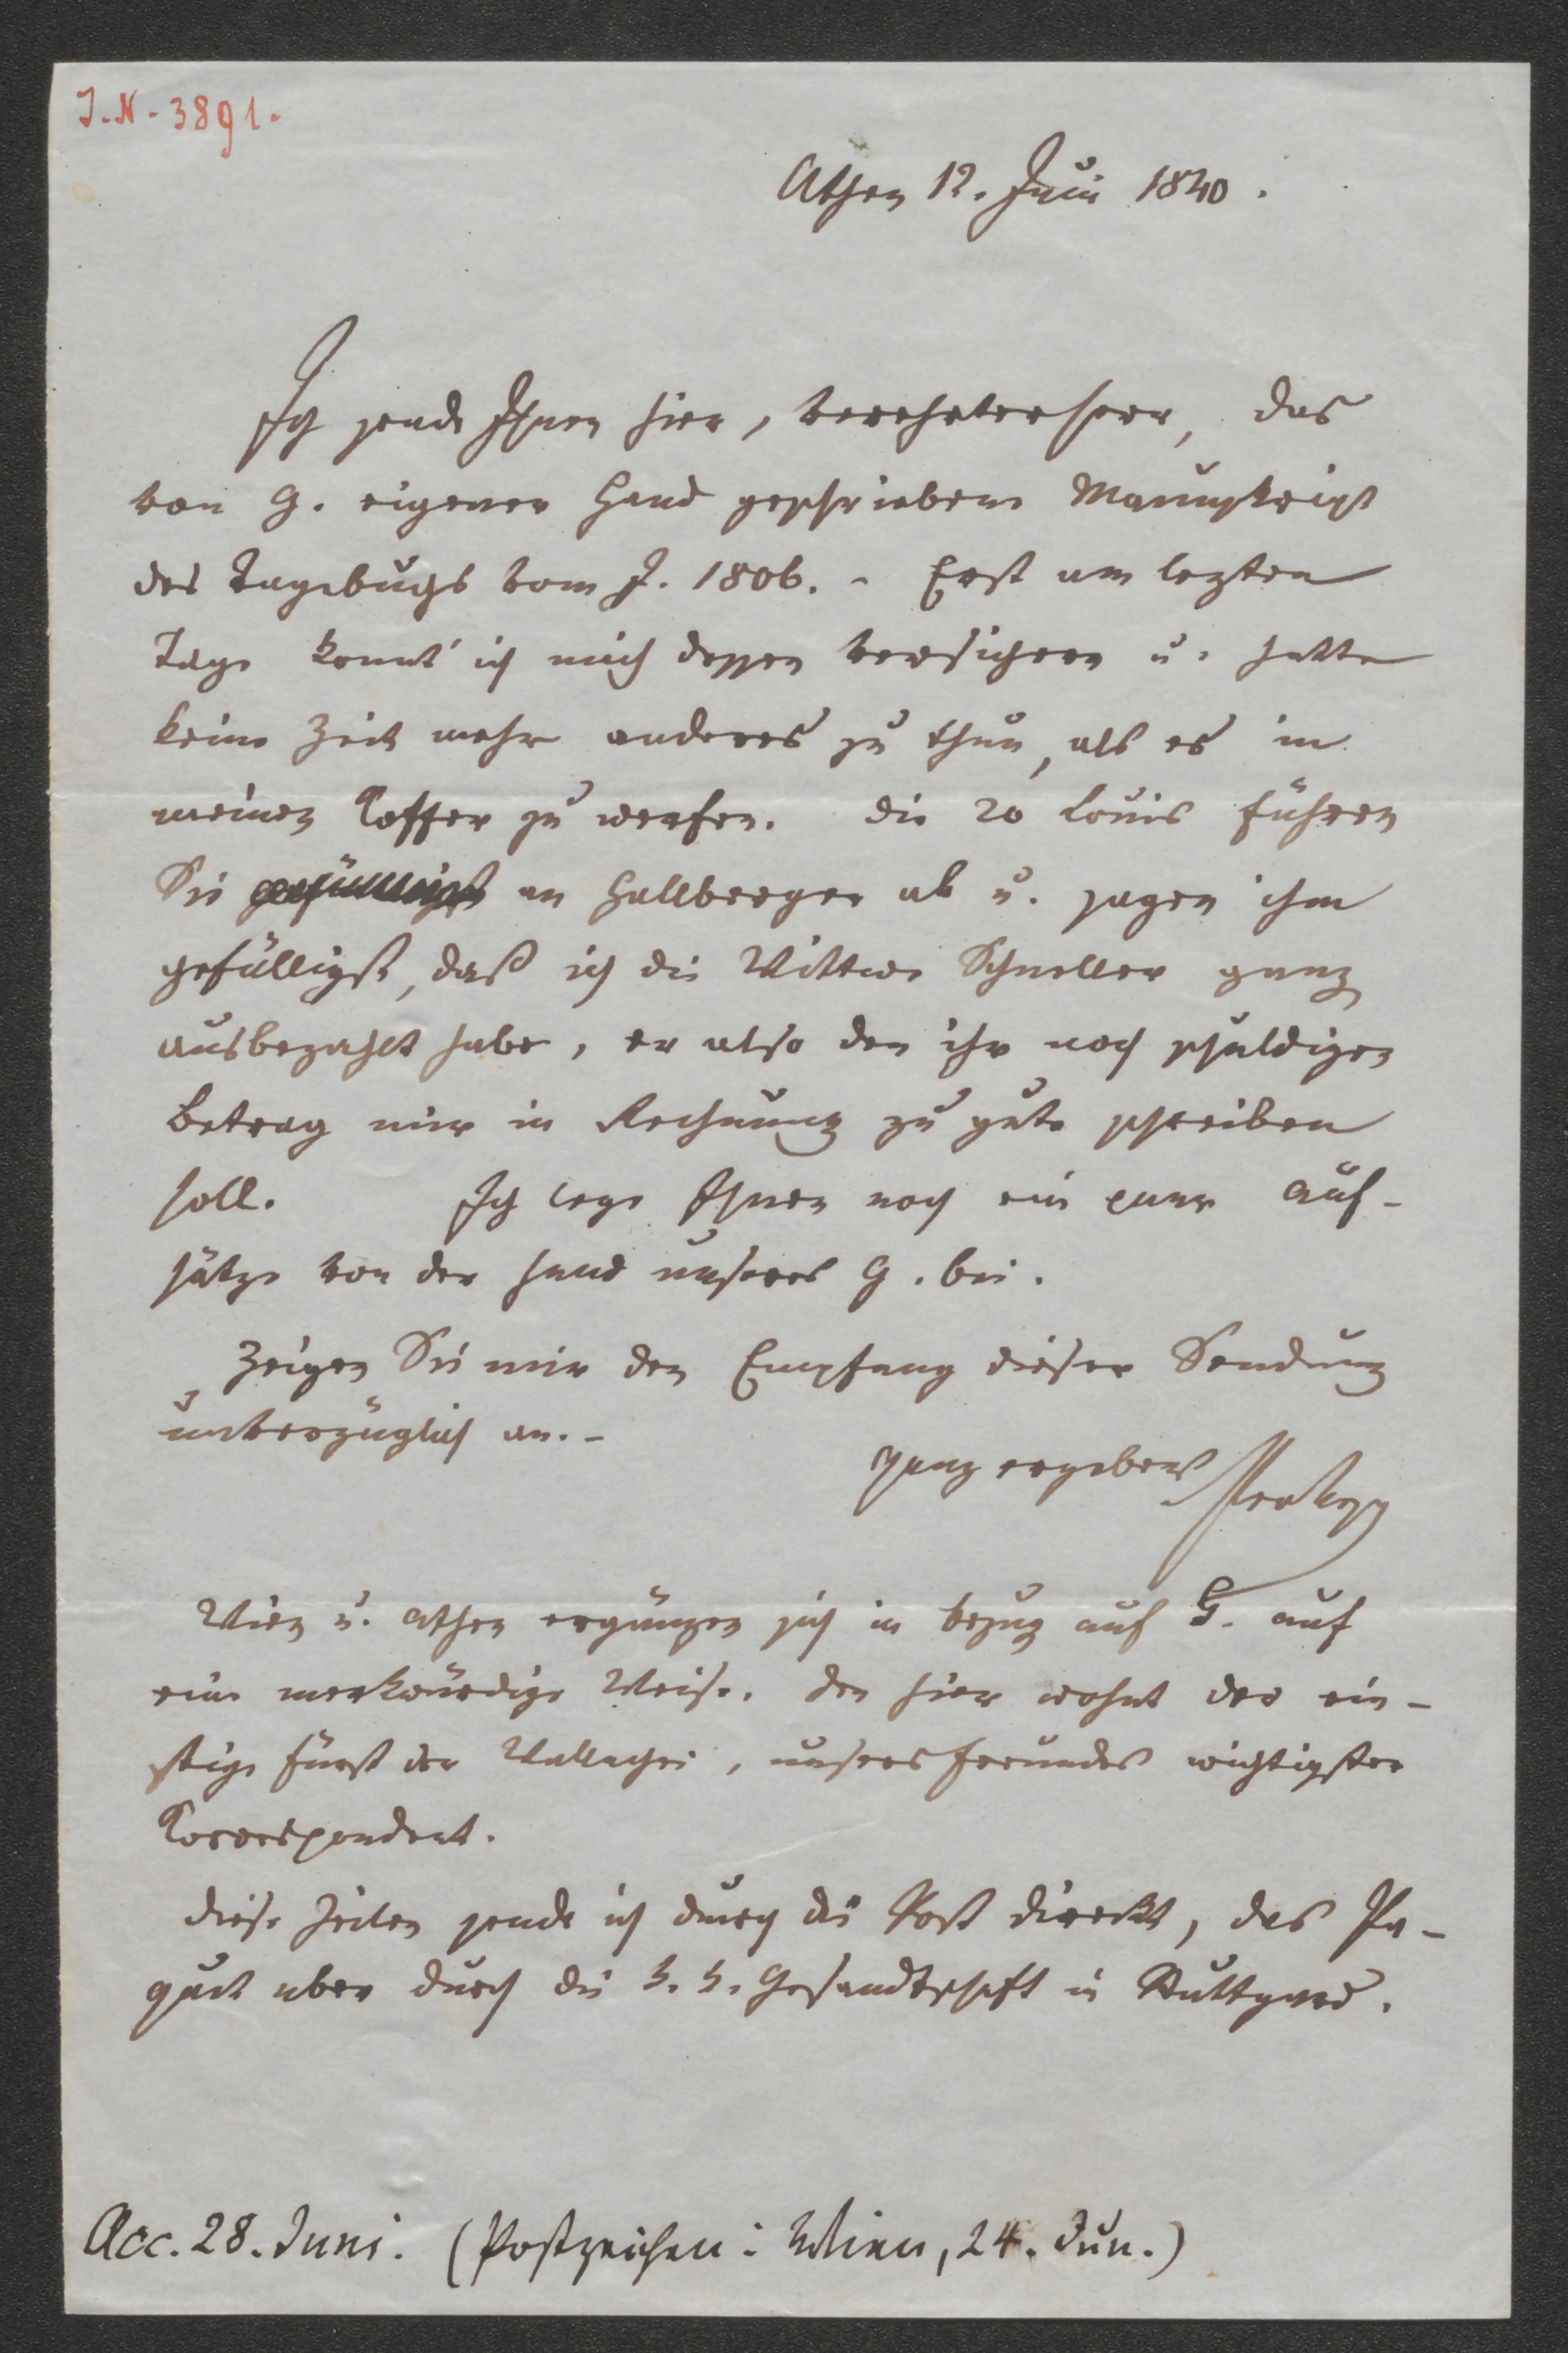 J.N. 3891.
Athen 12. Juni 1840.
Ich sende Ihnen hier, verehrter Herr, das
von G. eigener Hand geschriebene Manuskript
des Tagebuchs vom J. 1806. - Erst am lezten
Tage konnt' ich mich dessen versichern u. hatte
keine Zeit mehr anderes zu thun, als es in
meinen Koffer zu werfen. Die 20 Louis führen
Sie gefälligst an Hallberger ab u. sagen ihm
gefälligst, daß ich die Wittwe Schneller ganz
ausbezahlt habe, er also den ihr noch schuldigen
Betrag mir in Rechnung zu gute schreiben
soll. Ich lege Ihnen noch ein paar Auf-
sätze von der Hand unseres G. bei.
Zeigen Sie mir den Empfang dieser Sendung
unverzüglich an. -
ganz ergebenst Prokesch
Wien u. Athen ergänzen sich in bezug auf G. auf
eine merkwürdige Weise. Den hier wohnt der ein-
stige Fürst der Wallachei, unsers Freundes wichtigster
Korrespondent.
Diese Zeilen sende ich durch die Post direkt, das Pa-
quet aber durch die k. k. Gesandtschaft in Stuttgard.
Acc. 28. Juni. (Postzeichen: Wien, 24. Jun.)